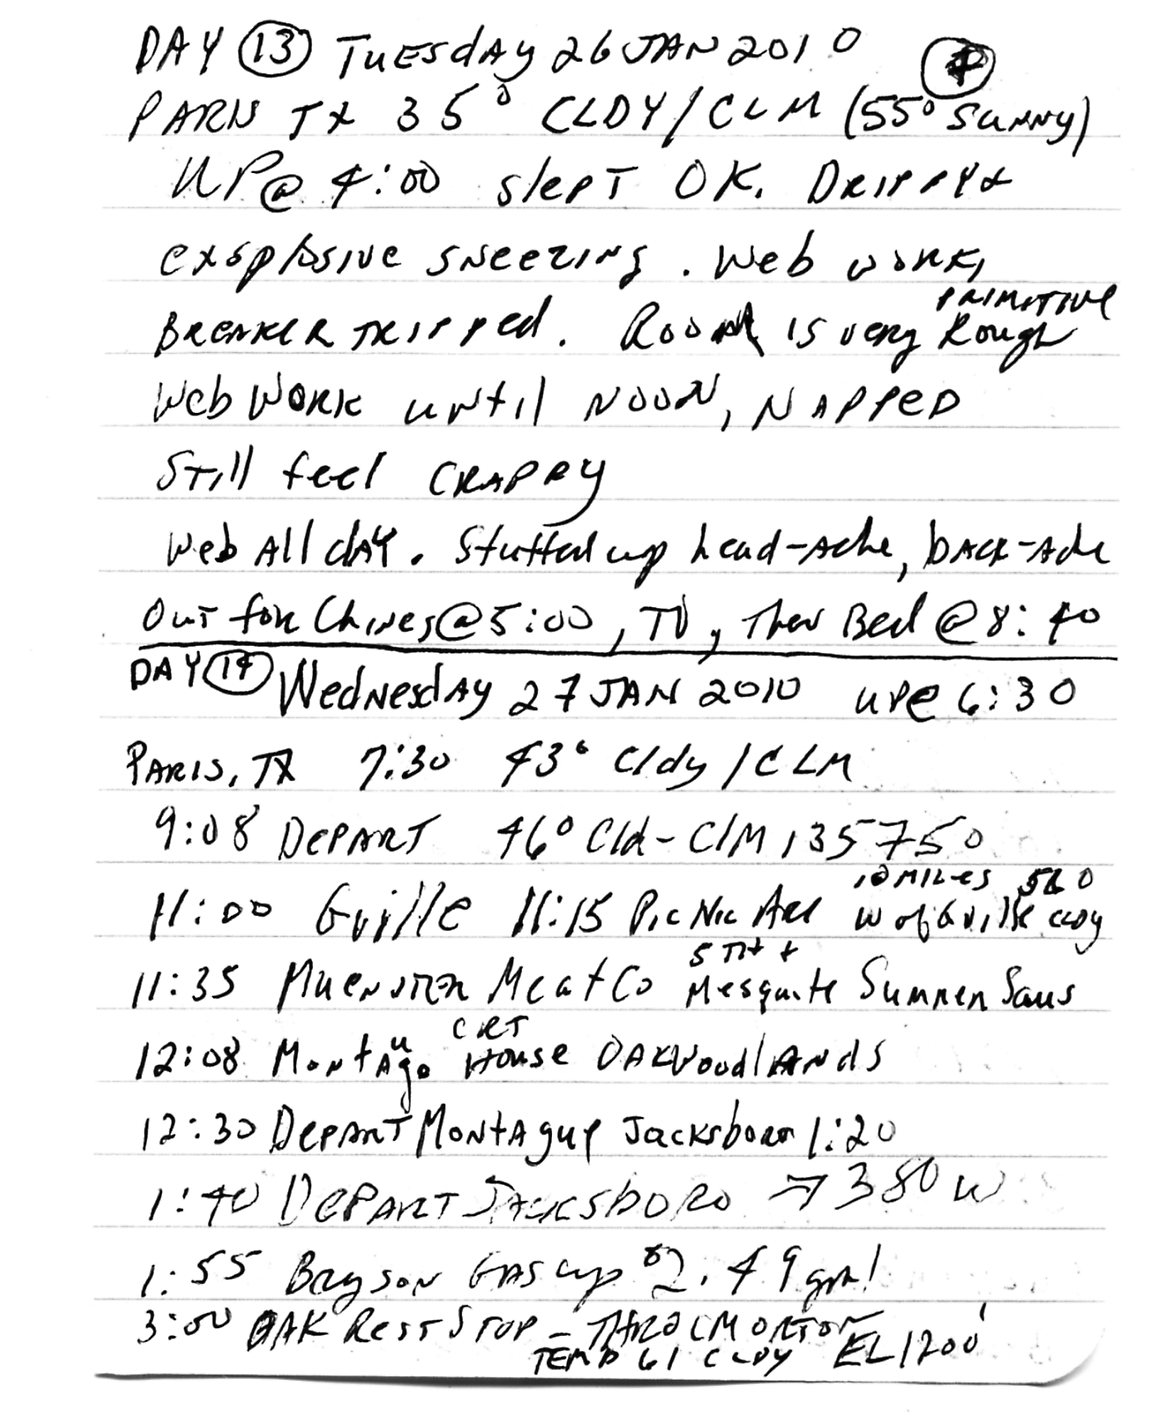 DAY 13 TUESdAY 26 JAN 2010
7
PARIS TX 35° CLDY/CLM (55° SUNNY)
UP@ 4:00 slept OK. DRIPPY +
exsplosive sneezing. Web work,
PRIMITIVE
BREAKER TRIPPed. Room is very Rough
Web WORK until NOON, NAPPED
Still feel CRAPPY
Web All dAY. Stuffed up head-Ache, bACK-Ache
Out for Chines@5:00, TV, Then Bed @ 8:40
DAY 14 Wednesday 27 JAN 2010 up@ 6:30
PARIS, TX 7:30 43° Cldy/CLM
9:08 DEPART 46° Cld-ClM 135750
10 MILES 56°
11:00 Gville 11:15 PicNic Are W of Gville CLDY
11:35 Muenster Meat Co Mesquite Summer Saus
CRT
12:08 Montague House OAKWoodlANds
12:30 DEPART Montague Jacksboro 1:20
1:40 DEPART JACKSboRo → 380 W
1:55 Bryson GAS up $2.49 gal!
3:00 OAK Rest STOP - THROCMORTON
TEMP 61 CLDY EL 1200'